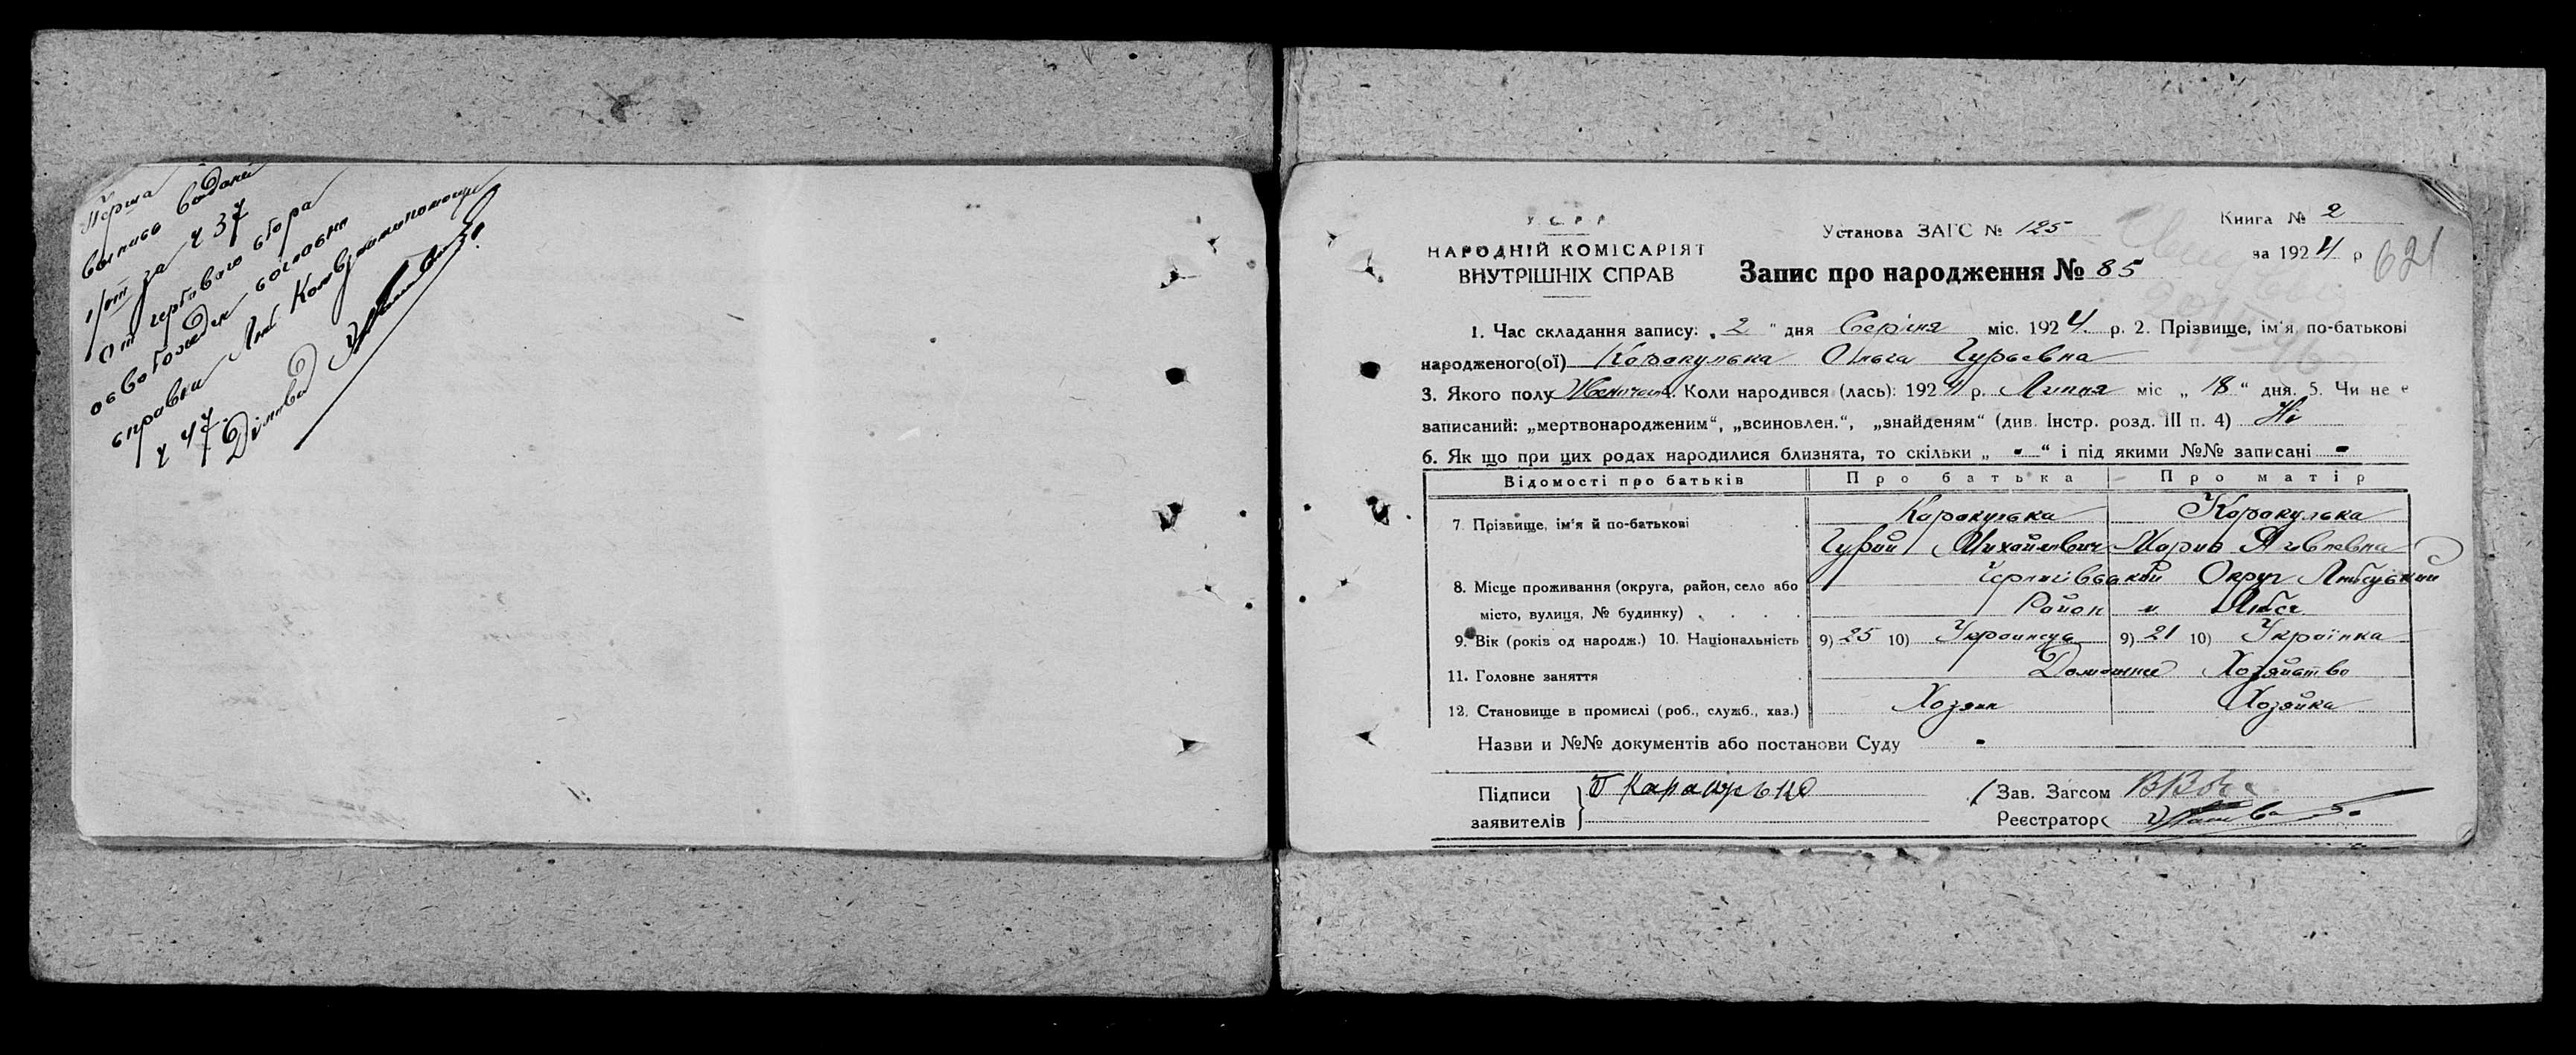 Перша
выпись выдана
за ч 37
От гербового сбора
освобожден согласно
справки Люб. Комвзаимопомощи
ч 47.
Діловод
УСРР
НАРОДНІЙ КОМІСАРІЯТ
ВНУТРІШНІХ СПРАВ
Установа ЗАГС № 125
Книга № 2
за 1924 р
621
Запис про народження № 85
1. Час складання запису: „2“ дня Серпня міс. 1924. р. 2. Прізвище, ім'я, по-батькові
народженого(ої) Каракулька Ольга Гурьевна
3. Якого полу Жіночаго 4. Коли народився (лась): 1924 р. Липня міс „18“ дня. 5. Чи не є
записаний: „мертвонародженим“, „всиновлен.“, „знайденям“ (див. Інстр. розд. III п. 4) Ні
6. Як що при цих родах народилися близнята, то скільки „-“ і під якими №№ записані -
Відомості про батьків Про батька Про матір
7. Прізвище, ім'я й по-батькові Каракулька Каракулька
Гурий Михайлович Мария Яковлевна
8. Місце проживання (округа, район, село або Чернігівський Округ Любецький
місто, вулиця, № будинку) Район м Любеч
9. Вік (років од народж.) 10. Національність 9) 25 10) Украинець 9) 21 10) Українка
11. Головне заняття Домашнее Хозяйство
12. Становище в промислі (роб., служб., хаз.) Хозяин Хозяйка
Назви и №№ документів або постанови Суду -
Підписи Г Каракулько
заявителів
Зав. Загсом
Реєстратор